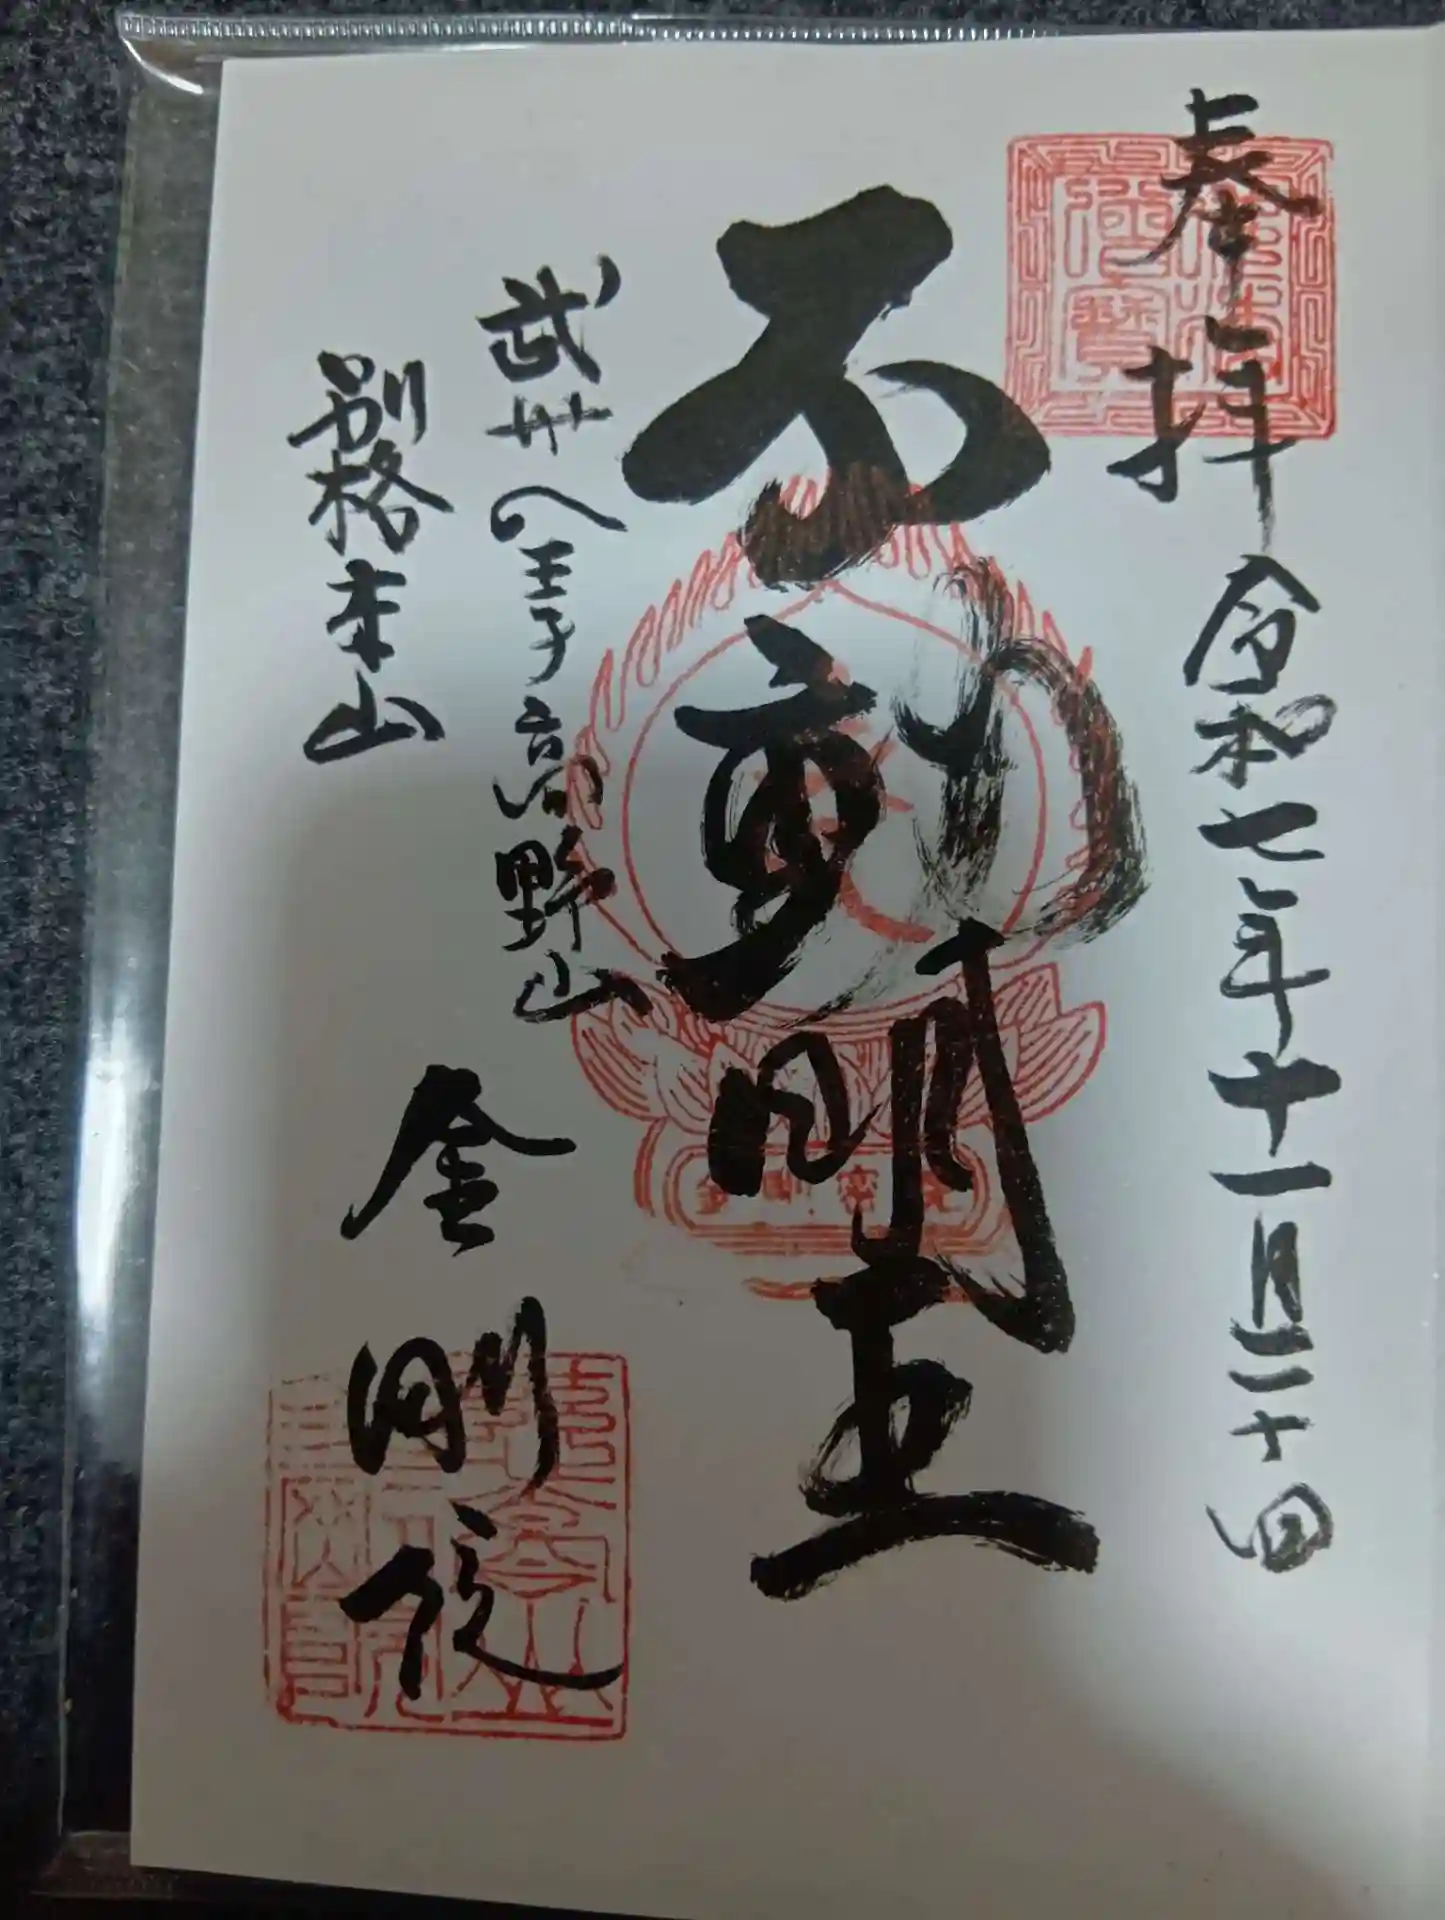 奉拝
令和七年十一月二十日
不動明王
武州八王子高野山
別格本山
金剛院